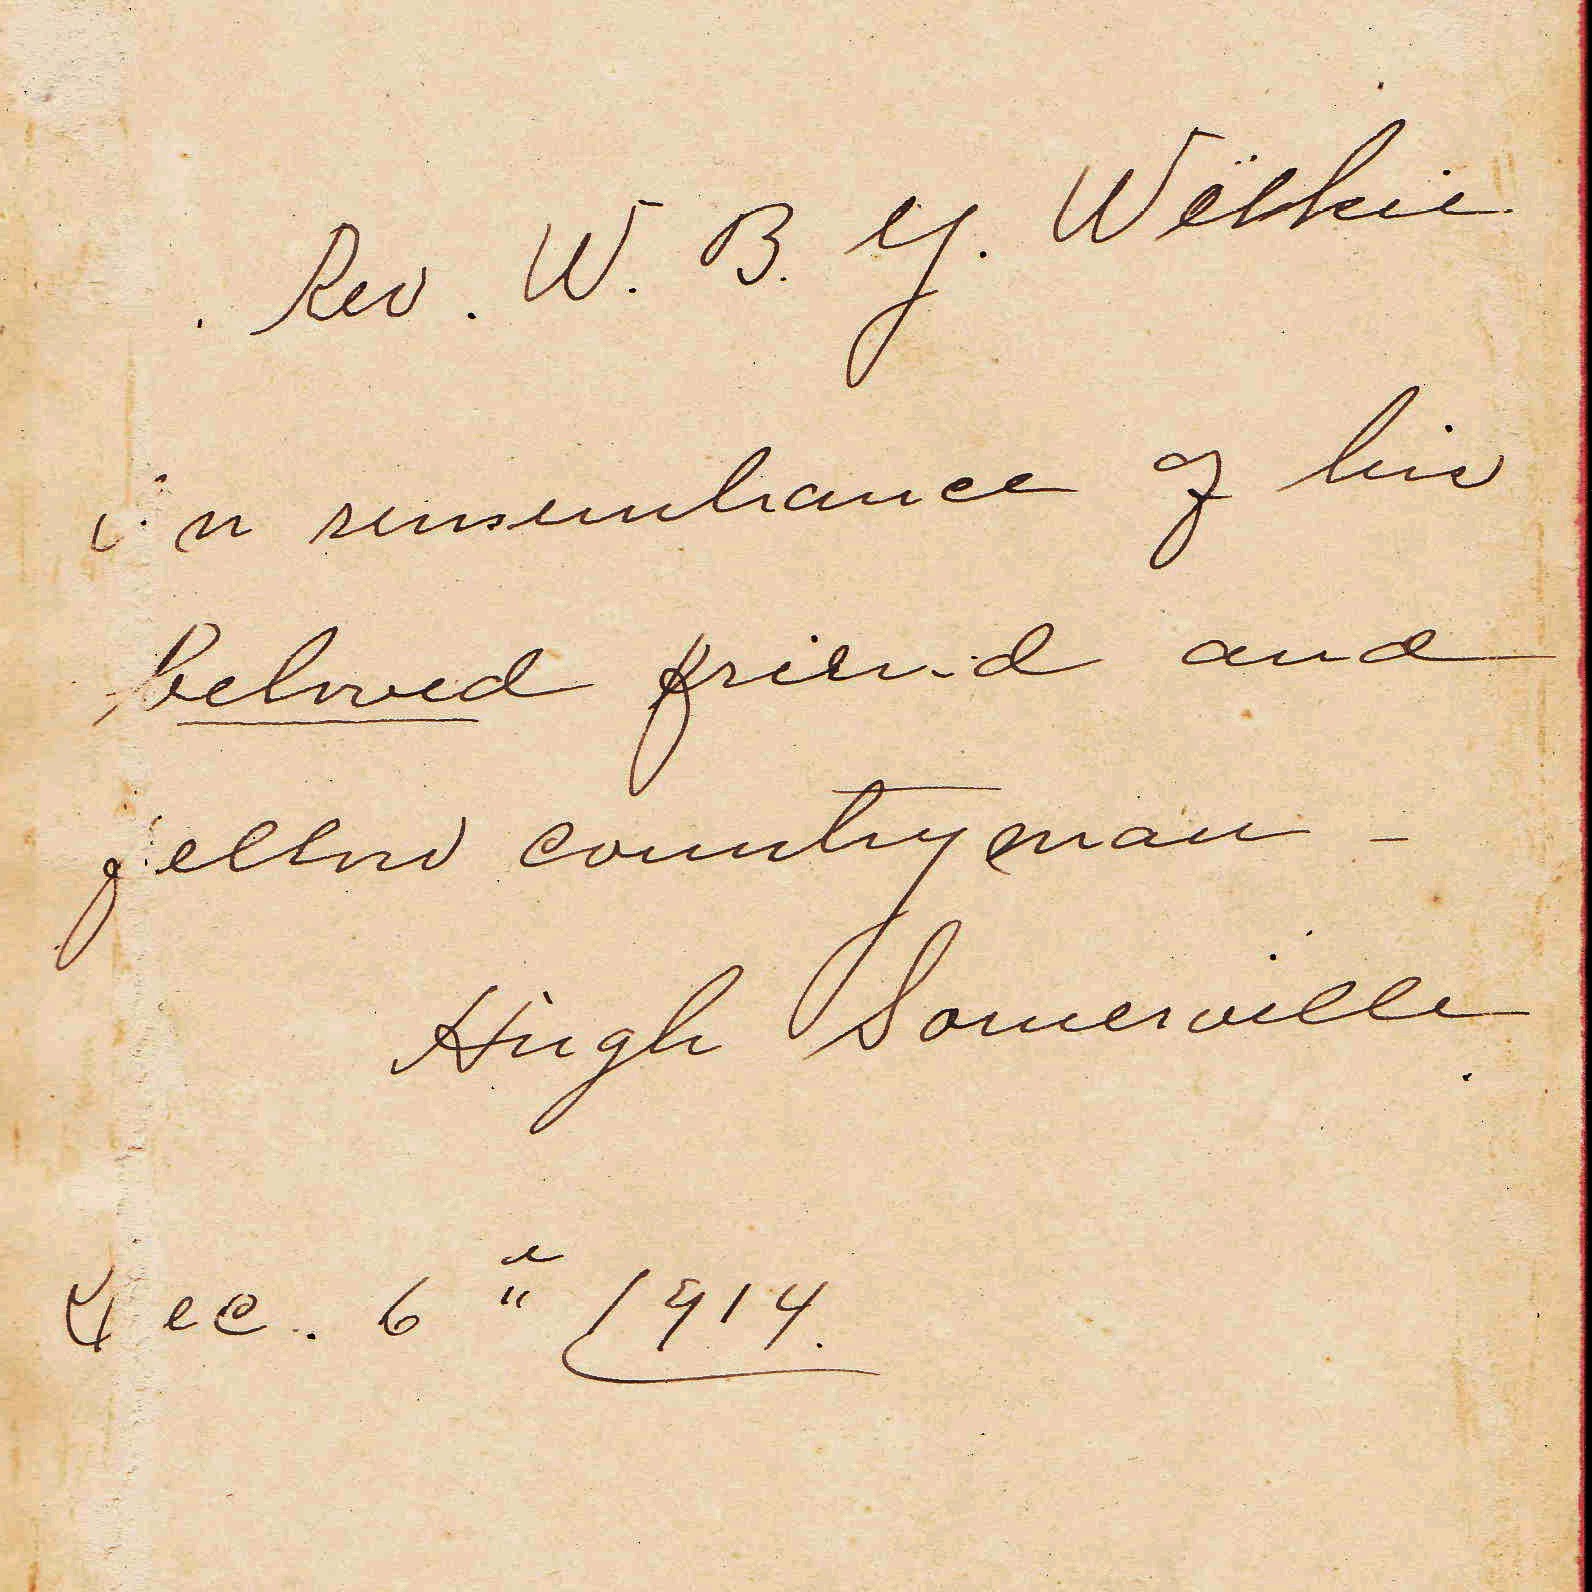 Rev. W. B. Y. Wilkie
in remembrance of his
beloved friend and
fellow countryman -
Hugh Somerville
Dec. 6 1914.